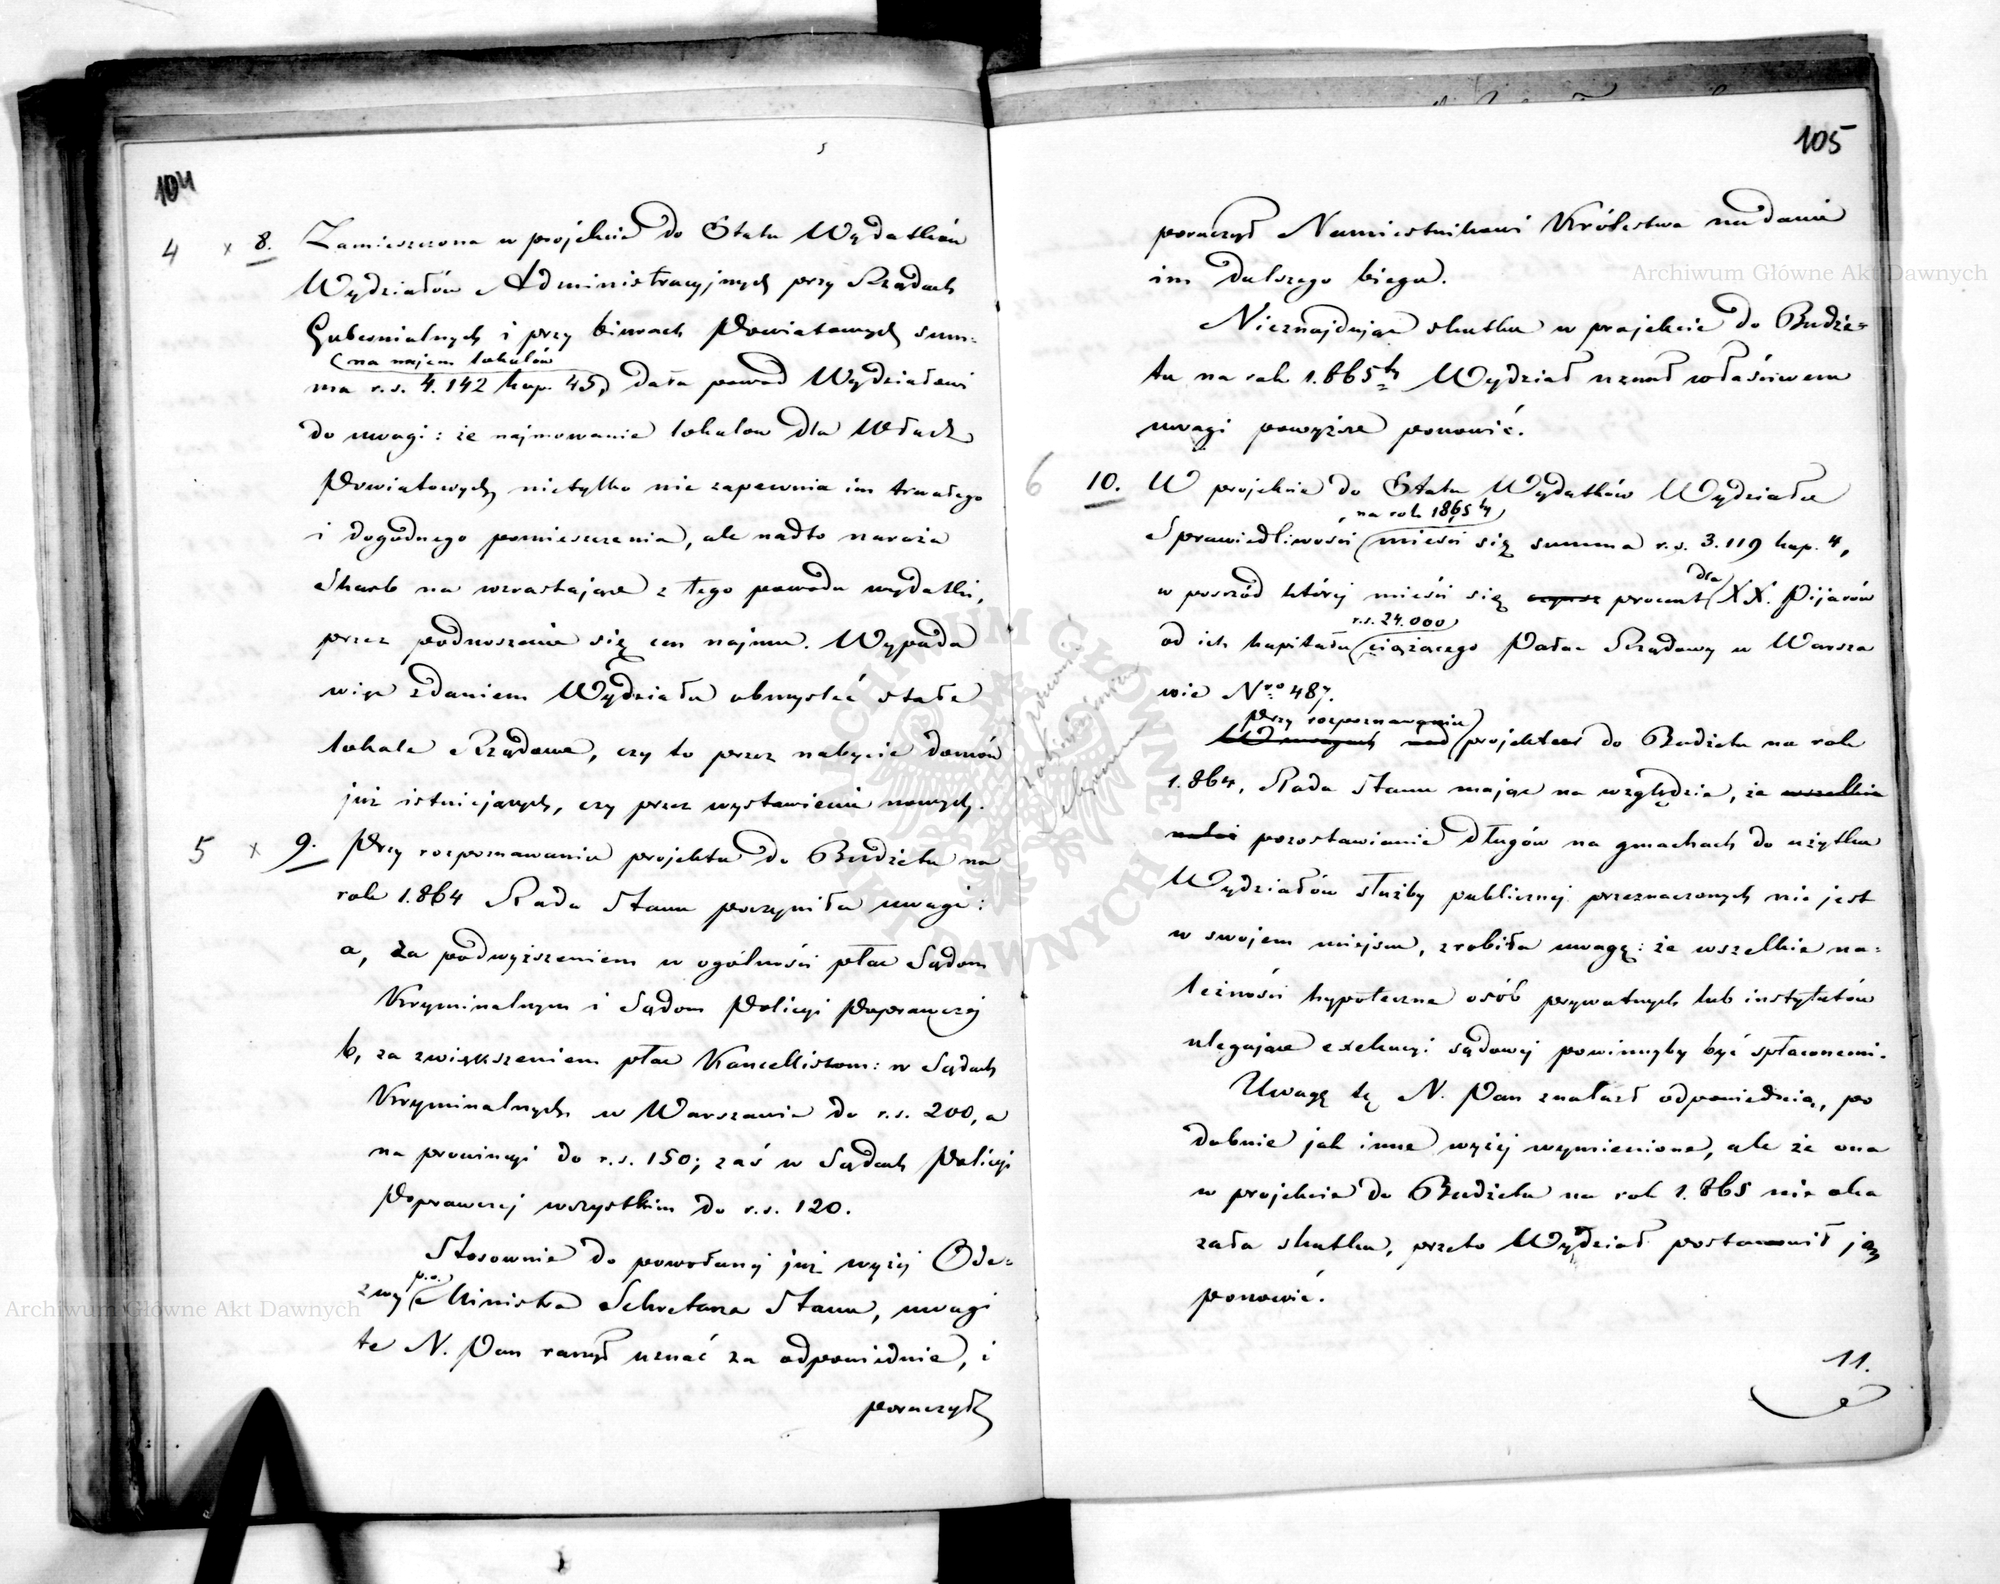 104
4 x 8. Zamieszczona w projekcie do Etatu Wydatków
Wydziałów Administracyjnych przy Rządach
Gubernialnych i przy biurach Powiatowych sum-
(na najem lokalów
ma r.s. 4.142 kop. 45, dała powód Wydziałowi
do uwagi: że najmowanie lokalów dla Władz
Powiatowych, nietylko nie zapewnia im trwałego
i dogodnego pomieszczenia, ale nadto naraża
Skarb na wzrastające z tego powodu wydatki,
przez podnoszenie się cen najmu. Wypada
więc zdaniem Wydziału obmyśleć stałe
lokale Rządowe, czy to przez nabycie domów
już istniejących, czy przez wystawienie nowych.
5 x 9. Przy rozpoznawaniu projektu do Budżetu na
rok 1.864 Rada Stanu poczyniła uwagi:
a, za podwyższeniem w ogólności płac Sądom
Kryminalnym i Sądom Policyi Poprawczej
b, za zwiększeniem płac Kancellistom: w Sądach
Kryminalnych w Warszawie do r.s. 200, a
na prowincyi do r.s. 150; zaś w Sądach Policyi
Poprawczej wszystkim do r.s. 120.
Stosownie do powołanej już wyżej Ode-
p.o.
zwy (Ministra Sekretarza Stanu, uwagi
te N. Pan raczył uznać za odpowiednie, i
poruczył
105
poruczył Namiestnikowi Królestwa nadanie
im dalszego biegu.
Nieznajdując skutku w projekcie do Budże-
tu na rok 1.865ty Wydział uznał właściwem
uwagi powyższe ponowić.
6 10. W projekcie do Etatu Wydatków Wydziału
na rok 1865ty
Sprawiedliwości (mieści się summa r.s. 3.119 kop. 4,
dla
w pośród której mieści się czynsz procent (XX. Pijarów
r.s. 24.000
od ich kapitału (ciążącego Pałac Rządowy w Warsza
wie Nro 487.
Przy rozpoznawaniu
W uwagach nad (projektem do Budżetu na rok
1.864, Rada Stanu mając na względzie, że wszelkie
należ pozostawienie długów na gmachach do użytku
Wydziałów służby publicznej przeznaczonych nie jest
w swojem miejscu, zrobiła uwagę: że wszelkie na-
leżności hypoteczne osób prywatnych lub instytutów
ulegające exekucyi sądowej powinnyby być spłaconemi.
Uwagę tę N. Pan znalazł odpowiednią, po
dobnie jak inne wyżej wymienione, ale że ona
w projekcie do Budżetu na rok 1.865 nie oka
zała skutku, przeto Wydział postanowił ją
ponowić.
11.
Archiwum Główne Akt Dawnych
Archiwum Główne Akt Dawnych
ARCHIWUM GŁÓWNE AKT DAWNYCH